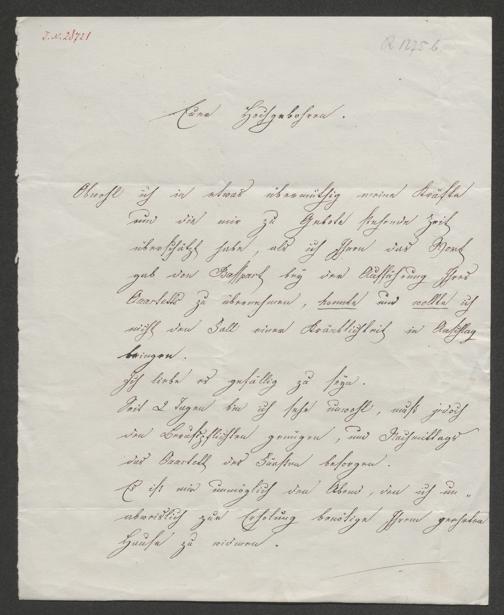 I.N. 28721
R 1275 b
Euer Hochgebohren.
Obwohl ich in etwas übermüthig meine Kräfte
und die mir zu Gebote stehende Zeit
überschätzt habe, als ich Ihnen das Wort
gab den Basspart bey der Aufführung Ihres
Quartetts zu übernehmen, konnte und wollte ich
nicht den Fall einer Kränklichkeit in Anschlag
bringen.
Ich liebe es gefällig zu seyn.
Seit 2 Tagen bin ich sehr unwohl, muß jedoch
den Berufspflichten genügen, und Nachmittags
das Quartett des Fürsten besorgen.
Es ist mir unmöglich den Abend, den ich un-
abweislich zur Erholung benötige Ihrem geehrten
Hause zu widmen.